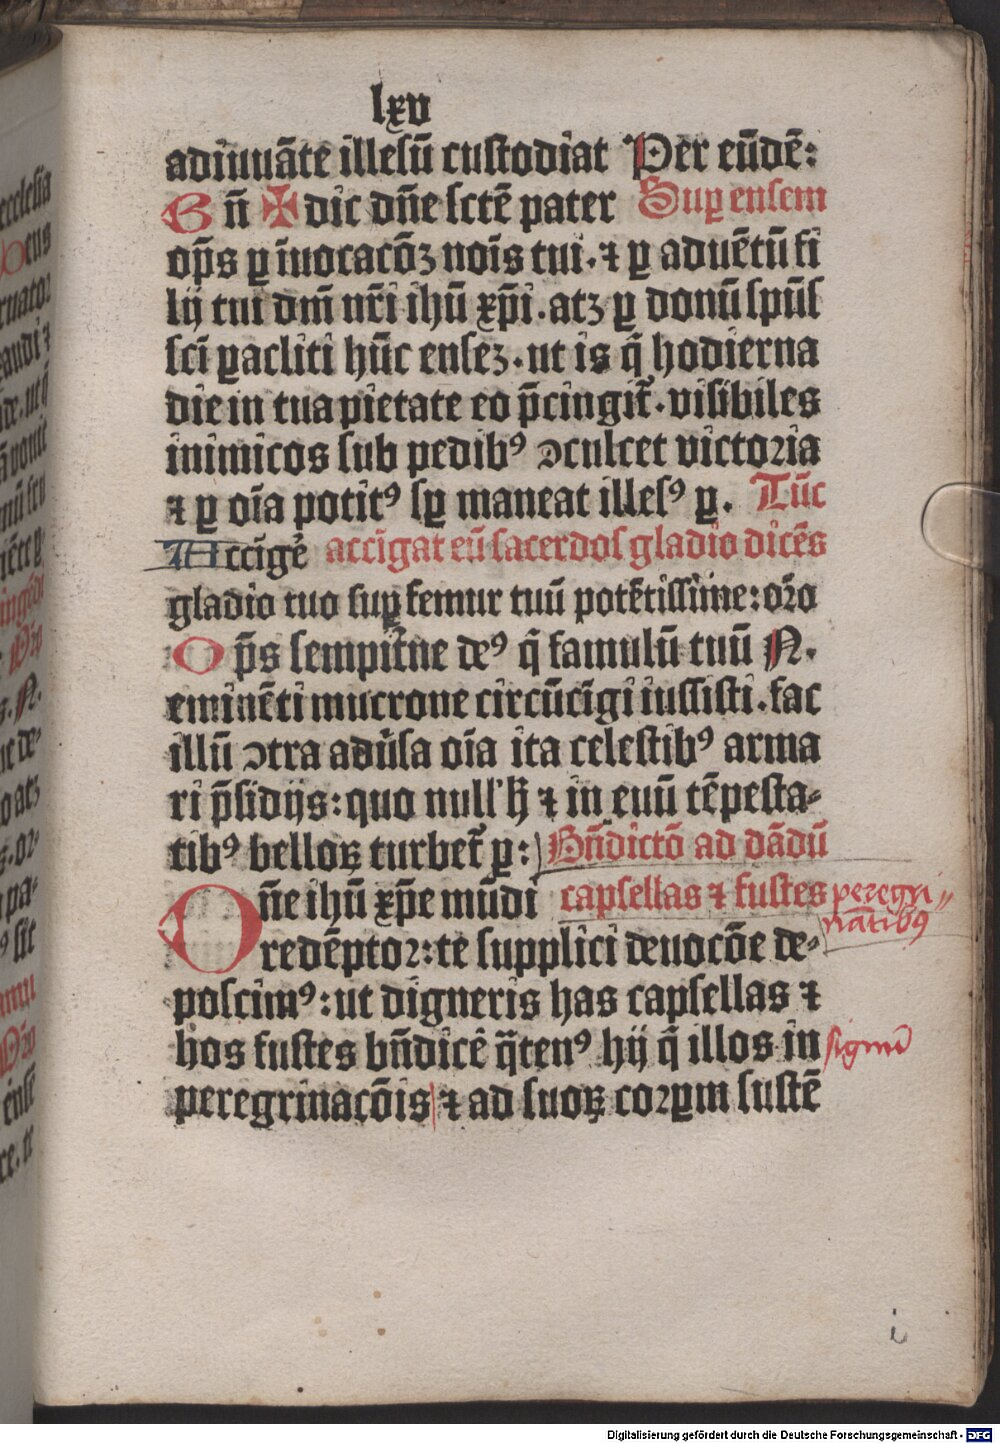 lxv
adiuuāte illesū custodiat Per eūdē:
Bn̄ ✠ dic dn̄e sctē pater Suꝑ ensem
op̄s ꝑ īuocacōꝫ noīs tui. ⁊ ꝑ aduētū fi
lij tui dn̄i nr̄i ihū xp̄i. atꝫ ꝑ donū spūs
scī ꝑacliti hūc enseꝫ. ut is q̄ hodierna
die in tua pietate eo p̄cingit̄. visibiles
inimicos sub pedibꝰ ↄculcet victoria
⁊ ꝑ oīa potitꝰ sꝑ maneat illesꝰ ꝑ. Tūc
Accīgē accīgat eū sacerdos gladio dicēs
gladio tuo suꝑ femur tuū potētissime: or̄o
Op̄s sempit̄ne deꝰ q̄ famulū tuū N.
eminēti mucrone circūcīgi iussisti. fac
illū ↄtra adūsa oīa ita celestibꝰ arma
ri p̄sidijs: quo null' ħ ⁊ in euū tēpesta⸗
tibꝰ belloꝝ turbet̄ ꝑ: Bn̄dictō ad dādū
One ihū xp̄e mūdi capsellas ⁊ fustes peregri⸗
natibꝰ
redēptor: te supplici deuocōe de⸗
poscimꝰ: ut digneris has capsellas ⁊
hos fustes bn̄dicē q̄tenꝰ hij q̄ illos in signū
peregrinacōis ⁊ ad suoꝝ corꝑm sustē
i
Digitalisierung gefördert durch die Deutsche Forschungsgemeinschaft - DFG